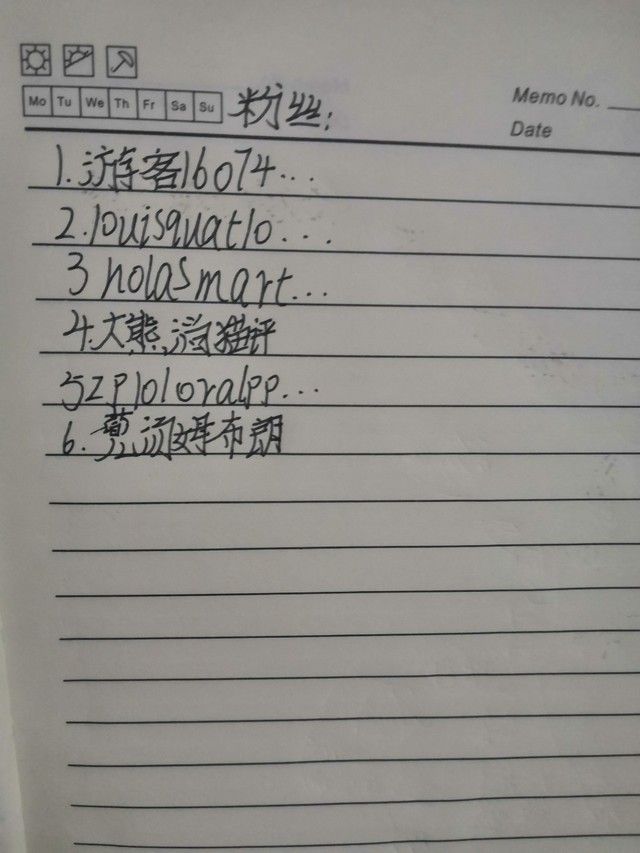 Mo Tu We Th Fr Sa Su
粉丝:
Memo No.
Date
1.游客16074...
2.louisquatlo...
3 nolasmart...
4.大熊 猫评
5zploloralpp...
6. 汤姆布朗